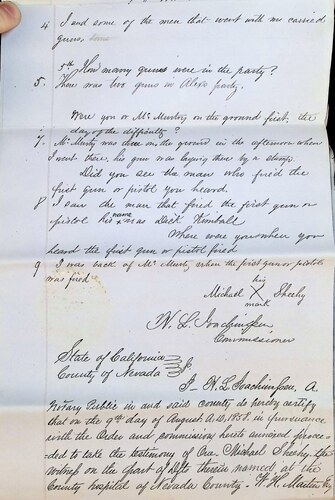 4 I and some of the men that went with me carried
guns
5th How many guns were in the party?
5. There was two guns in Alex's party.
Were you or McMurtry on the ground first, the
day of the difficulty?
7. McMurty was there on the ground in the afternoon when
I went there. his gun was laying there by a stump.
Did you see the man who fired the
first gun or pistol you heard.
8 I saw the man that fired the first gun or
pistol his name was Dick Kimball
Where were you when you
heard the first gun or pistol fired
9 I was back of McMurty when the first gun or pistol
was fired
his
Michael X Sheehy
mark
N. L. Joachimsen
Commissioner
State of California
County of Nevada
I N. L. Joachimsen, A
Notary Public in and said county do hereby certify
that on the 9th day of August A.D. 1858. in pursuance
with the Order and commission hereto annexed proce-
ded to take the testimony of Michael Sheehy the
witness on the part of Defts therein named at the
County hospital of Nevada County.